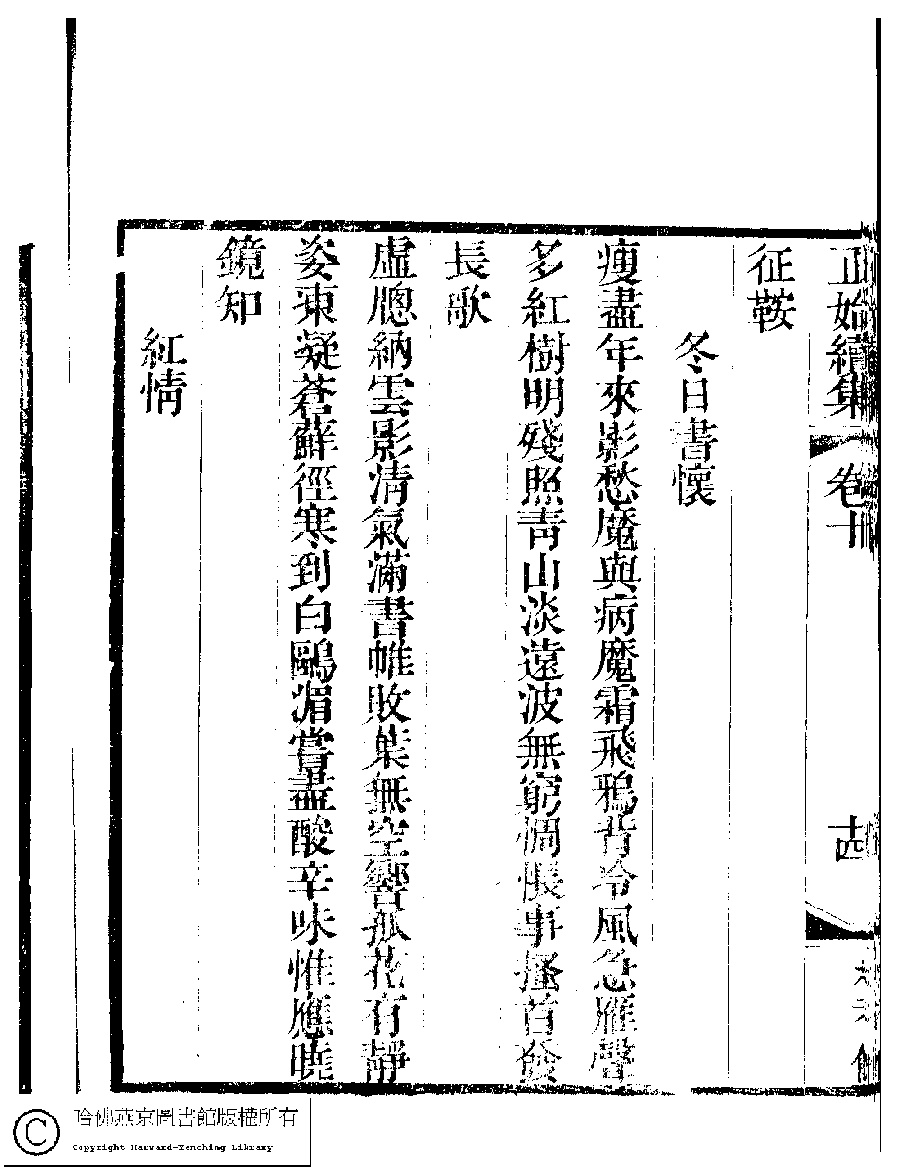 正始續集 卷十 十四
征鞍
冬日書懷
瘦盡年來影愁魔與病魔霜飛鴉背冷風急雁聲
多紅樹明殘照青山淡遠波無窮惆悵事搔首發
長歌
虛牕納雲影清氣滿書帷敗葉無空響孤花有靜
姿東凝蒼蘚徑寒到白鷗湄嘗盡酸辛味惟應曉
鏡知
紅情
哈佛燕京圖書館版權所有
Copyright Harvard-Yenching Library